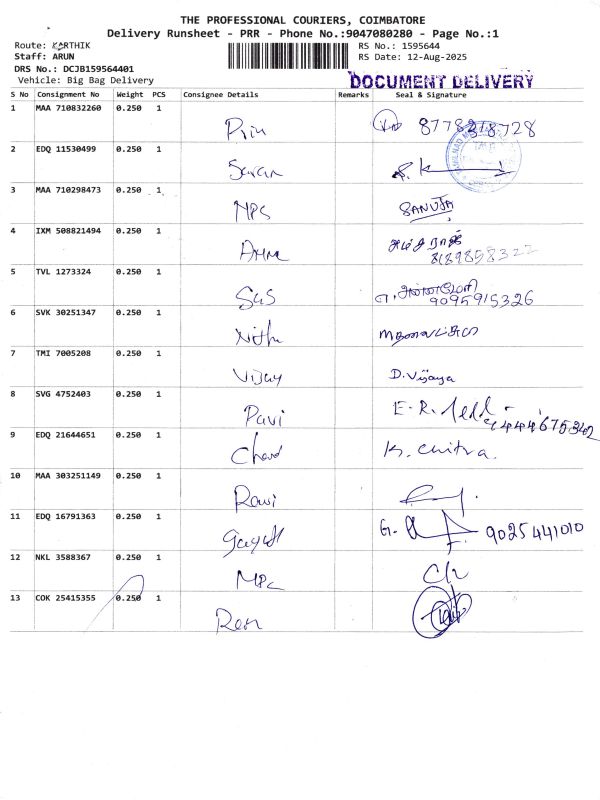 THE PROFESSIONAL COURIERS, COIMBATORE
Delivery Runsheet - PRR - Phone No.:9047080280 - Page No.:1
Route: KARTHIK
RS No.: 1595644
Staff: ARUN
RS Date: 12-Aug-2025
DRS No.: DCJB159564401
Vehicle: Big Bag Delivery
DOCUMENT DELIVERY
S No Consignment No Weight PCS Consignee Details Remarks Seal & Signature
1 MAA 710832260 0.250 1
8778318728
2 EDQ 11530499 0.250 1
Saran
3 MAA 710298473 0.250 1
MPS SANUJA
4 IXM 508821494 0.250 1
8189858322
5 TVL 1273324 0.250 1
SGS 9095915326
6 SVK 30251347 0.250 1
Nithu
7 TMI 7005208 0.250 1
Vijay D. Vijaya
8 SVG 4752403 0.250 1
Pavi E. R.
9 EDQ 21644651 0.250 1
K. Chitra.
10 MAA 303251149 0.250 1
Ravi
11 EDQ 16791363 0.250 1
G. 9025441010
12 NKL 3588367 0.250 1
13 COK 25415355 0.250 1